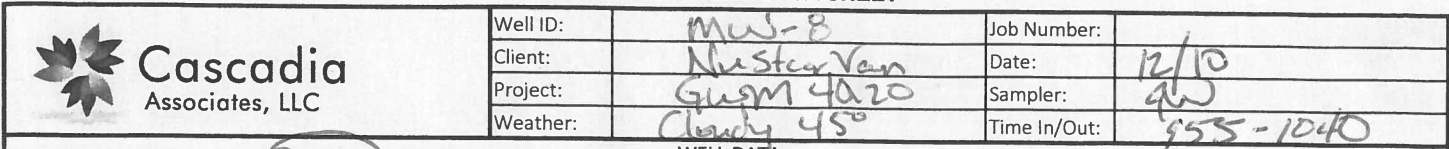 Cascadia
Associates, LLC
Well ID: MW-8 Job Number:
Client: NuStar Van Date: 12/10
Project: GWM 4Q20 Sampler:
Weather: Cloudy 45° Time In/Out: 955-1040